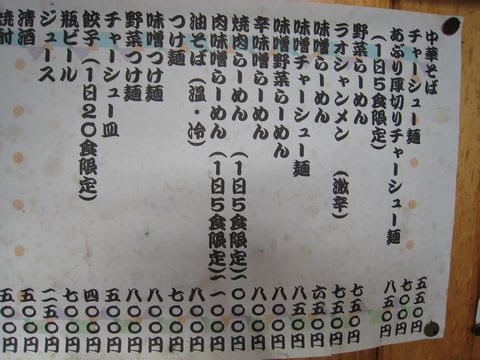 中華そば 五五〇円
チャーシュー麺 七〇〇円
あぶり厚切りチャーシュー麺 八五〇円
(1日5食限定)
野菜らーめん 七五〇円
ラオシャンメン (激辛) 七五〇円
味噌らーめん 六五〇円
味噌チャーシュー麺 八五〇円
味噌野菜らーめん 八〇〇円
辛味噌らーめん 八〇〇円
焼肉らーめん (1日5食限定) 一〇〇〇円
肉味噌らーめん (1日5食限定) 一一〇〇円
油そば (温・冷) 八〇〇円
つけ麺 七〇〇円
味噌つけ麺 八〇〇円
野菜つけ麺 八〇〇円
チャーシュー皿 五五〇円
餃子 (1日20食限定) 四〇〇円
瓶ビール 七〇〇円
ジュース 二五〇円
清酒 五〇〇円
焼酎 五〇〇円